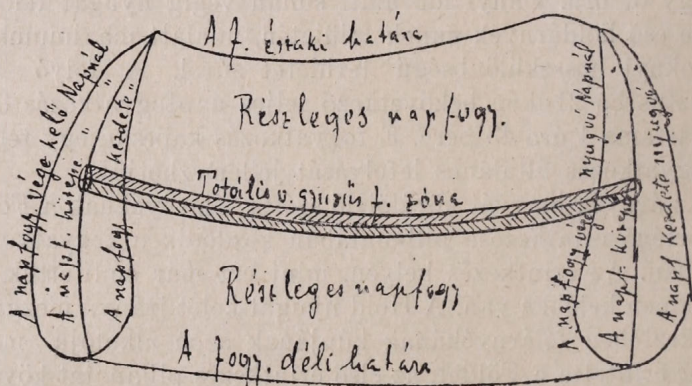 A f. északi határa
Részleges napfogy.
Totális v. gyűrűs f. zóna
Részleges napfogy
A fogy. déli határa
A napfogy. vége kelő Napnál
A napf. közepe " "
A napfogy. kezdete " "
A napfogy. vége nyugvó Napnál
A napf. közepe
A napf kezdete nyugvó